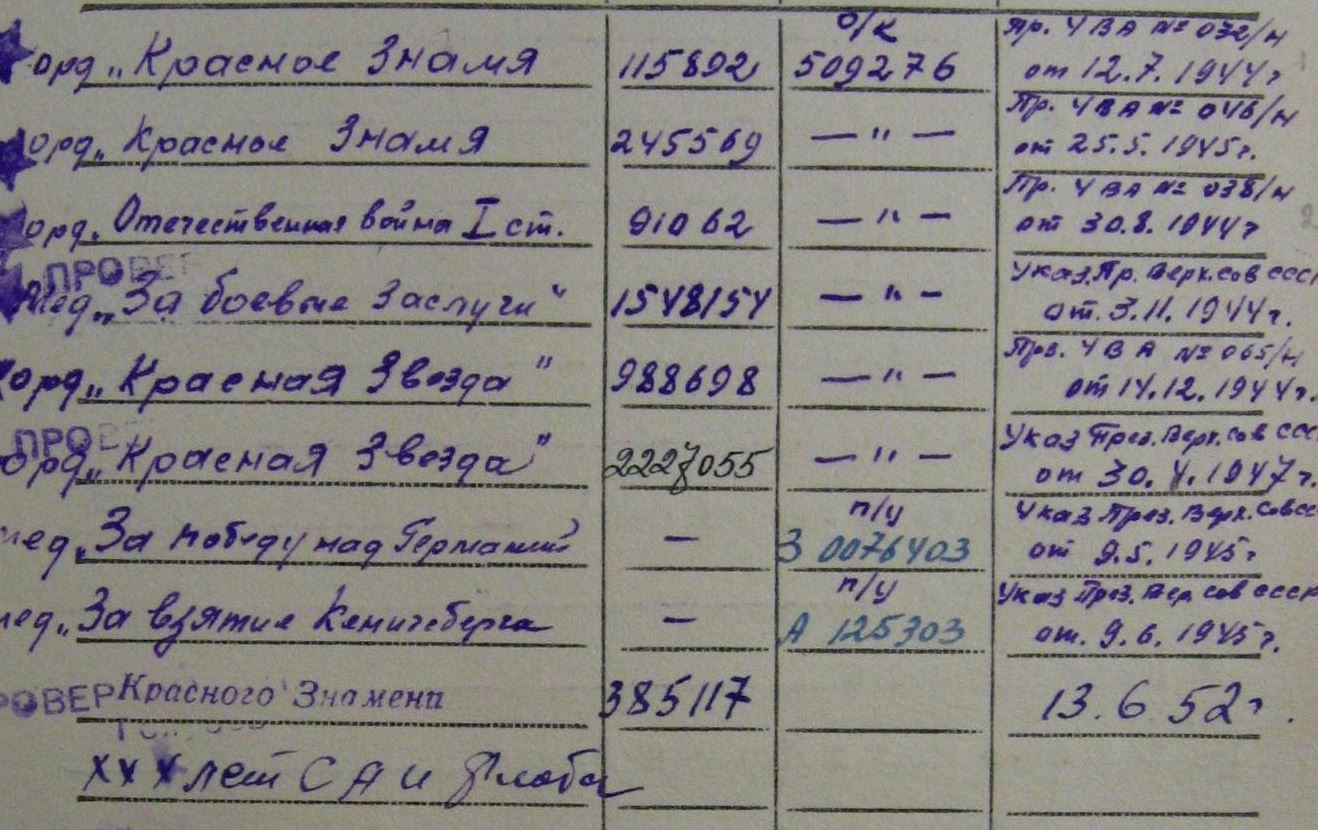 о/к Пр. 4 ВА № 032/н
орд „Красное Знамя 115892 509276 от 12.7.1944г
Пр. 4 ВА № 046/н
орд„ Красное Знамя 245569 — " — от 25.5.1945г.
Пр. 4 ВА № 038/н
орд„ Отечественная война I ст. 91062 — " — от 30.8.1944г
ПРОВЕР Указ.Пр. Верх.сов ссср
Мед„За боевые заслуги" 1548154 — " — от. 3.11.1944г.
Прв. 4 ВА № 065/н
орд„ Красная Звезда" 988698 — " — от 14.12.1944г.
ПРОВЕ Указ През.Верх.сов ссс
орд„Красная Звезда" 2227055 — " — от 30. 1947г.
п/у Указ През.Верх.Совсс
мед„За победу над Германией 
— З 0076403 от 9.5.1945г
п/у Указ През.Вер сов ссср
мед„За взятие Кенигсберга — А 125303 от. 9.6.1945г.
РОВЕР Красного Знамени 385117 13.6 52г.
ХХХлет СА и Флота